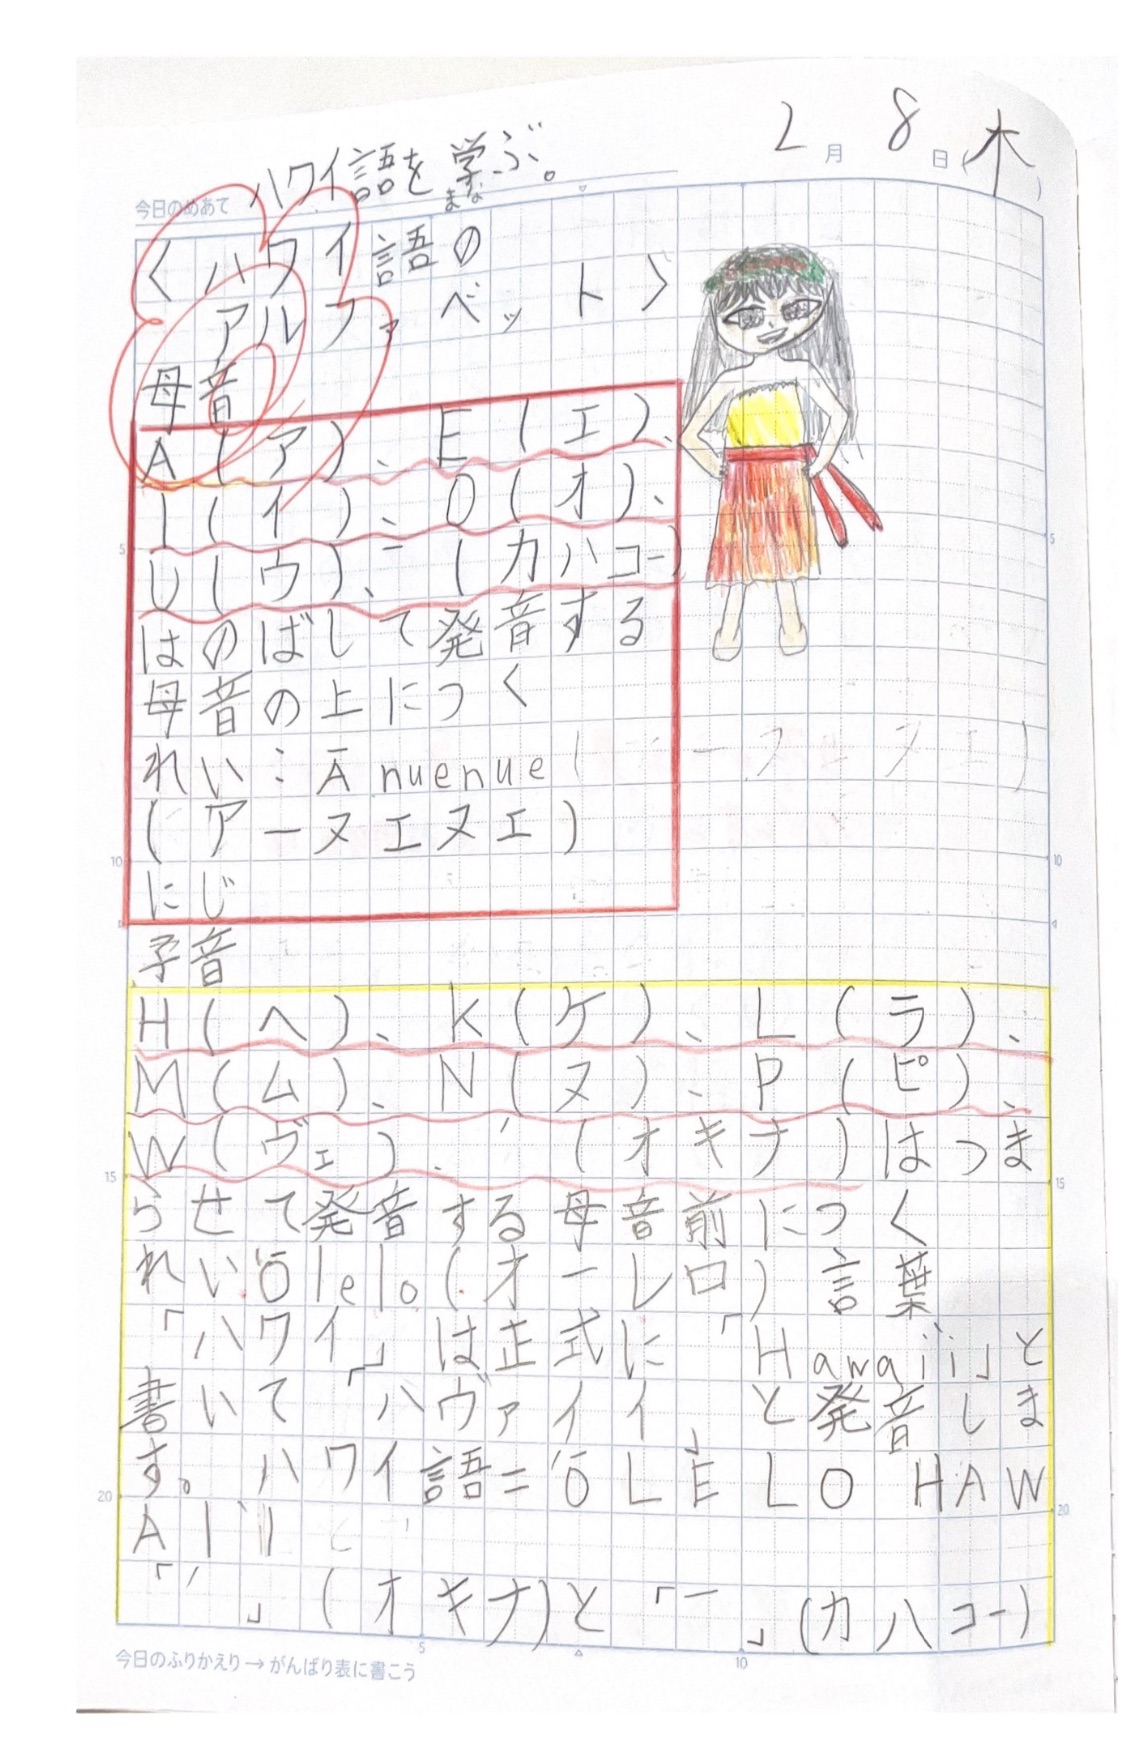 2月 8日(木)
ハワイ語を学ぶ。
まな
今日のめあて
〈ハワイ語の
アルファベット〉
母音
A(ア)、E(エ)、
I(イ)、O(オ)、
U(ウ)、ー(カハコー)
はのばして発音する
母音の上につく
れい:Ānuenue
(アーヌエヌエ)
にじ
子音
H(ヘ)、K(ケ)、L(ラ)、
M(ム)、N(ヌ)、P(ピ)、
W(ヴェ)、ʻ(オキナ)はつま
らせて発音する母音前につく
れいʻōlelo(オーレロ)言葉
「ハワイ」は正式に「Hawaiʻi」と
書いて「ハヴァイイ」と発音しま
す。ハワイ語=ʻŌLELO HAW
AIʻI
「ʻ」(オキナ)と「ー」(カハコー)
今日のふりかえり→がんばり表に書こう
5
10
15
20
5
10
15
20
5
10